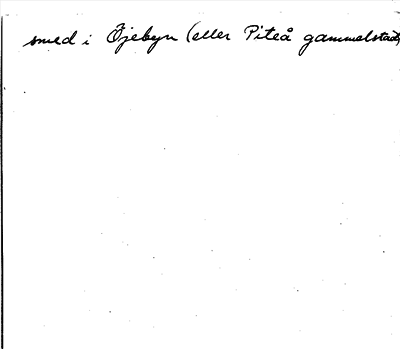 smed i Öjebyn (eller Piteå gammelstad)